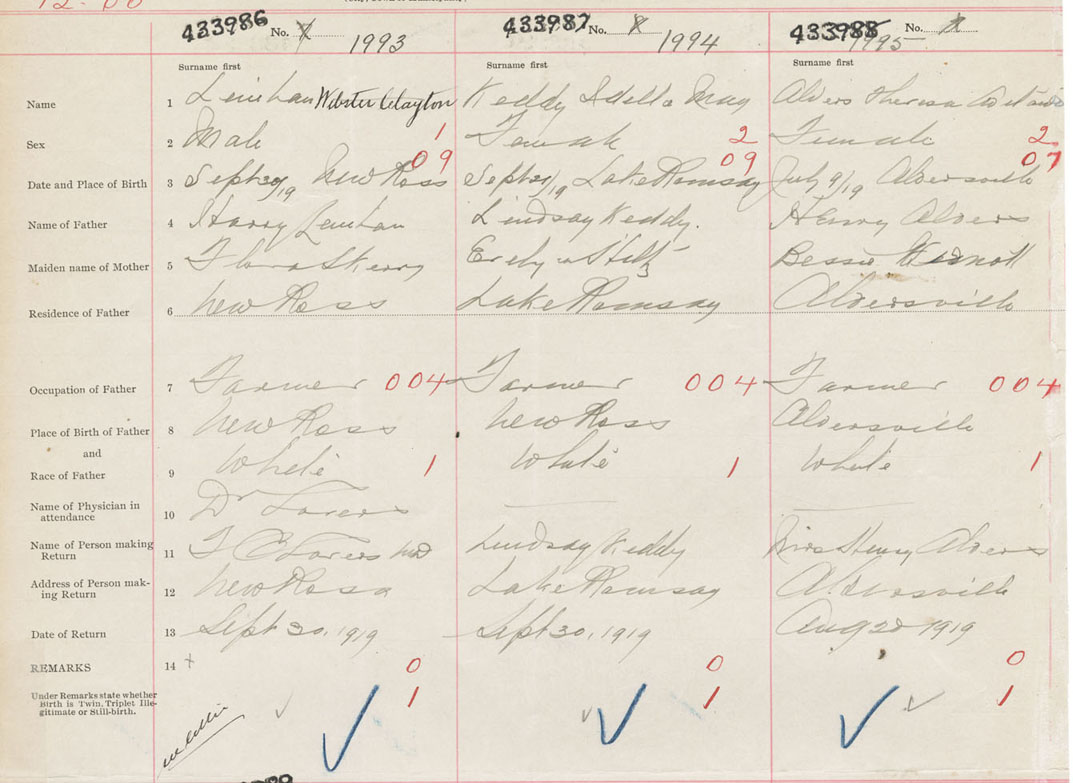 12.00
433986 No. X 1993 433987 No. X 1994 433988 No. X 1995
Surname first Surname first Surname first
Name 1 Lenihan Webster Clayton Keddy Idella May Alders Theresa
Sex 2 Male 1 Female 2 Female 2
09 09 07
Date and Place of Birth 3 Sept /19 New Ross Sept /19 Lake Ramsay July 9/19 Aldersville
Name of Father 4 Harry Lenihan Lindsay Keddy. Henry Alders
Maiden name of Mother 5 Flora Skerry Bessie
Residence of Father 6 New Ross Lake Ramsay Aldersville
Occupation of Father 7 Farmer 004 Farmer 004 Farmer 004
Place of Birth of Father 8 New Ross New Ross Aldersville
and
Race of Father 9 White 1 White 1 White 1
Name of Physician in
attendance 10 Dr
Name of Person making
Return 11 Lindsay Keddy Mrs Henry Alders
Address of Person mak-
ing Return 12 New Ross Lake Ramsay Aldersville
Date of Return 13 Sept 30, 1919 Sept 30, 1919 Aug 20 1919
REMARKS 14 + 0 0 0
Under Remarks state whether
Birth is Twin, Triplet Ille-
gitimate or Still-birth.
1 1 1